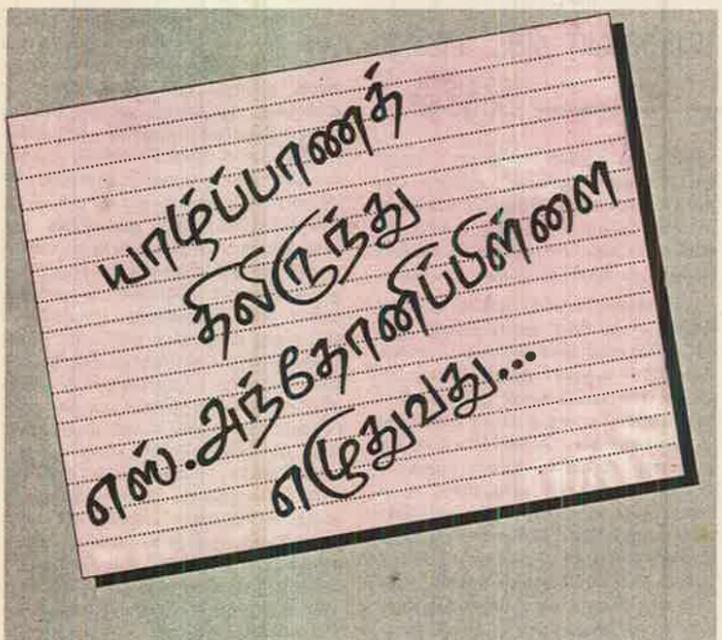 யாழ்ப்பாணத்
திலிருந்து
எஸ்.அந்தோனிப்பிள்ளை
எழுதுவது...